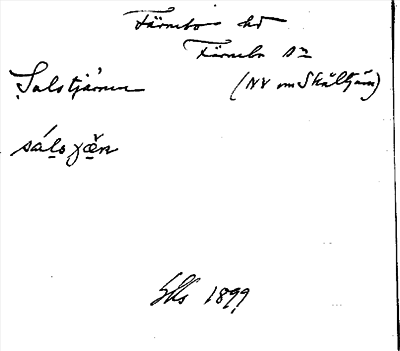 Färnebo hd
Färnebo sn
Salstjärnen (NV om Skåltjärn)
sálsχæ̆n
1899